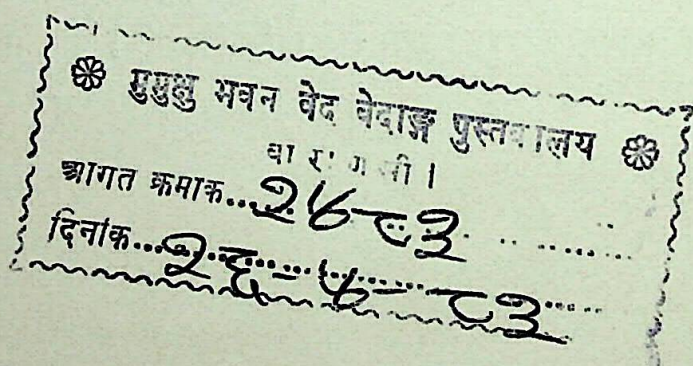 ❀ मुमुक्षु भवन वेद वेदाङ्ग पुस्तकालय ❀
वाराणसी ।
आगत क्रमाक... २४८३
दिनांक... २६-४-८३